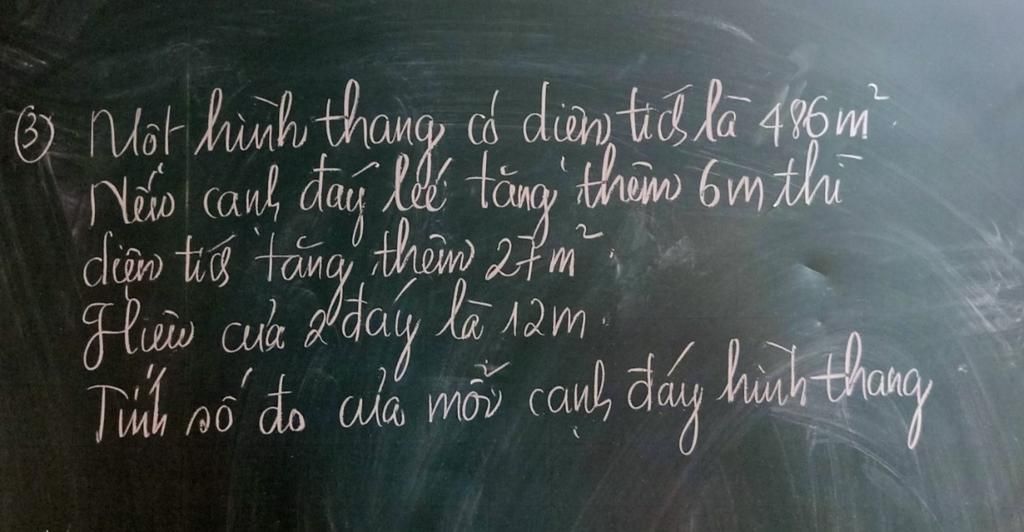 ③ Một hình thang có diện tích là 486m².
Nếu cạnh đáy lớn tăng thêm 6m thì
diện tích tăng thêm 27m².
Hiệu của 2 đáy là 12m.
Tính số đo của mỗi cạnh đáy hình thang